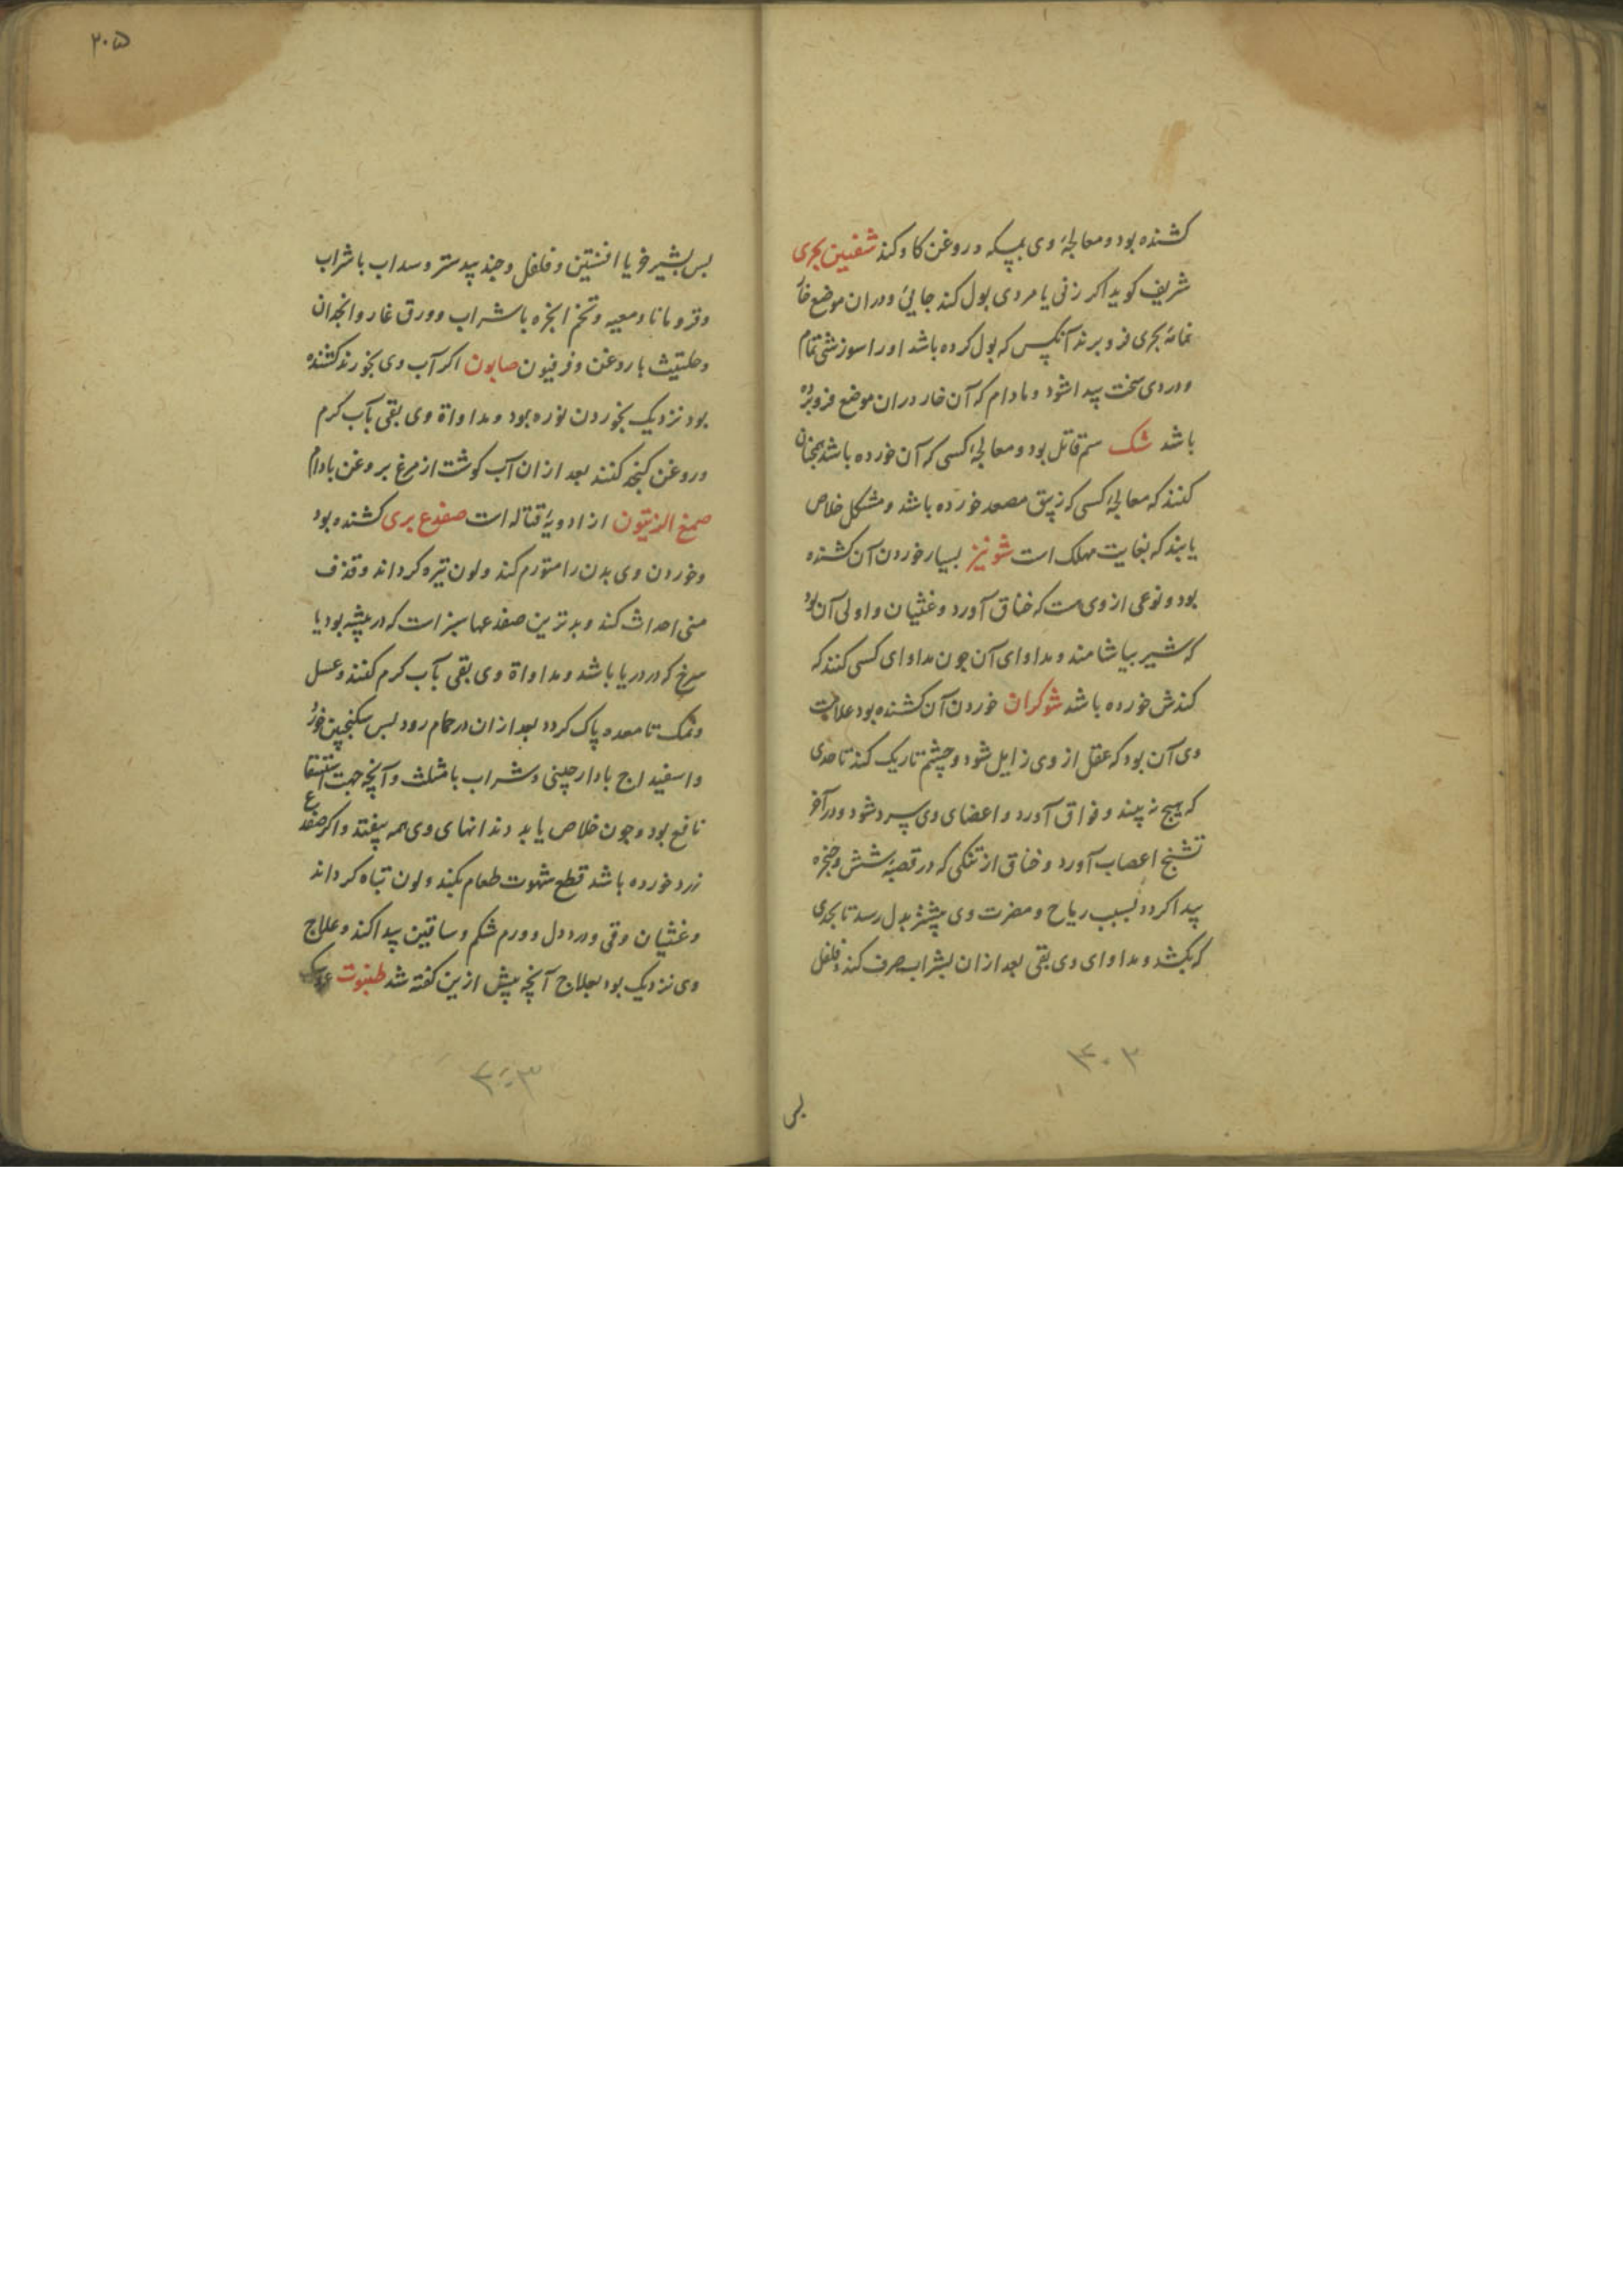 کشنده بود و معالجهٔ وی بمسکه و روغن کاو کنند شفنین بحری
شریف کوید اکر زنی یا مردی بول کند جایی و دران موضع خار
بحری فرو برند آنکس که بول کرده باشد او را سوزشی تمام
و دردی سخت پیدا شود و مادام که آن خار دران موضع فرو برده
باشد شک سم قاتل بود و معالجهٔ کسی که آن خورده باشد همچنان
کنند که معالجهٔ کسی که زیبق مصعد خورده باشد و مشکل خلاص
یابند که بغایت مهلک است شونیز بسیار خوردن آن کشنده
بود و نوعی از وی هست که خناق آورد و غثیان و اولی آن بود
که شیر بیاشامند و مداوای آن جون مداوای کسی کنند که
کندش خورده باشد شوکران خوردن آن کشنده بود علامت
وی آن بود که عقل از وی زایل شود و چشم تاریک کند تا حدی
که هیچ نه بیند و فواق آورد و اعضای وی سرد شود و در آخر
تشنج اعصاب آورد و خناق از تنکی که در قصبهٔ شش و حنجره
پیدا کردد بسبب ریاح و مضرت وی بیشتر بدل رسد تا بحدی
که بکشد و مداوای وی بقی بعد ازان بشراب صرف کنند و فلفل
بس
۲۰۵
بس بشیر خر یا افسنتین و فلفل و جند بیدستر و سداب با شراب
و قردمانا و میعه و تخم انجره با شراب و ورق غار و انجدان
و حلتیث با روغن و فرفیون صابون اکر آب وی بخورند کشنده
بود نزدیک بخوردن نوره بود و مداواة وی بقی بآب کرم
و روغن کنجد کنند بعد ازان آب کوشت از مرغ بروغن بادام
صمغ الزیتون از ادویهٔ قتاله است صفدع بری کشنده بود
و خوردن وی بدن را متورم کند و لون تیره کرداند و قذف
منی احداث کند و بدترین صفدعها سبز است که در بیشه بود یا
سرخ که در دریا باشد و مداواة وی بقی بآب کرم کنند و عسل
و نمک تا معده پاک کردد بعد ازان در حمام رود بس سکنجبین خورد
و اسفیداج با دارچینی و شراب با مثلث و آنچه جهت استسقا
نافع بود و جون خلاص یابد دندانهای وی همه بیفتد و اکر صفدع
زرد خورده باشد قطع شهوت طعام بکند و لون تباه کرداند
و غثیان و قی و درد دل و ورم شکم و ساقین پیدا کند و علاج
وی نزدیک بود بعلاج آنچه بیش ازین کفته شد طنبوت